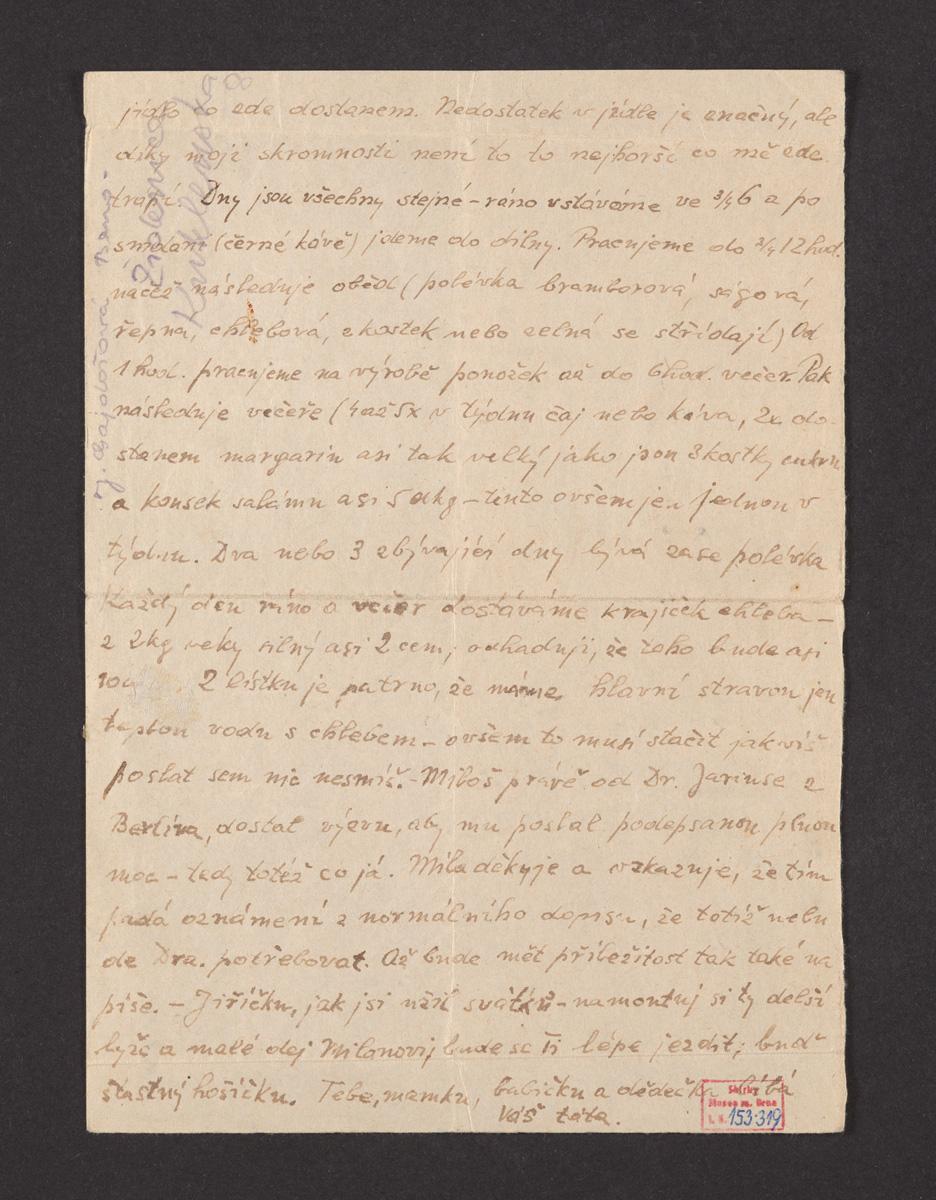 jídlo zde dostanem. Nedostatek v jídle je značný, ale
díky moji skromnosti není to to nejhorší co mě zde
trapí. Dny jsou všechny stejné - ráno vstáváme ve 3/4 6 a po
snídani (černé kávě) jdeme do dílny. Pracujeme do 3/4 12 hod.
načež následuje oběd (polévka bramborová, ságová,
řepna, chlebová, z kostek nebo zelná se střídají) Od
1 hod. pracujeme na výrobě ponožek až do 6 hod. večer. Pak
následuje večeře (4 až 5x v týdnu čaj nebo káva, 2x do-
stanem margarin asi tak velký jako json 3 kostky cukru
a kousek salámu asi 5 dkg - tento ovšem jen jednou v
týdnu. Dva nebo 3 zbývající dny bývá zase polévka
Každý den ráno a večer dostáváme krajíček chleba -
z 2kg veky silný asi 2 cem; odhaduji, že toho bude asi
Z lístku je patrno, že máme hlavní stravou jen
teplou vodu s chlebem - ovšem to musí stačit jak víš
poslat sem nic nesmíš. - Miloš právě od Dr. Jariuse z
Berlína, dostal výzvu, aby mu poslal podepsanou plnou
moc - tedy totéž co já. Míla děkuje a vzkazuje, že tím
padá oznámení z normálního dopisu, že totiž nebu
de Dra. potřebovat. Až bude mět příležitost tak také na
píše. - Jiříčku, jak jsi užil svátků - namontuj si ty delší
lyže a malé dej Milanovi; bude se ti lépe jezdit; buď
šťastný hošíčku. Tebe, mamku, babičku a dědečka líbá
Váš táta.
Sbírky
Musea m. Brna
153.319